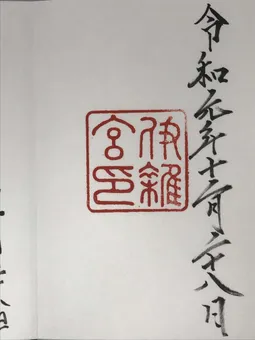 令和元年十二月二十八日
伊雜
宮印